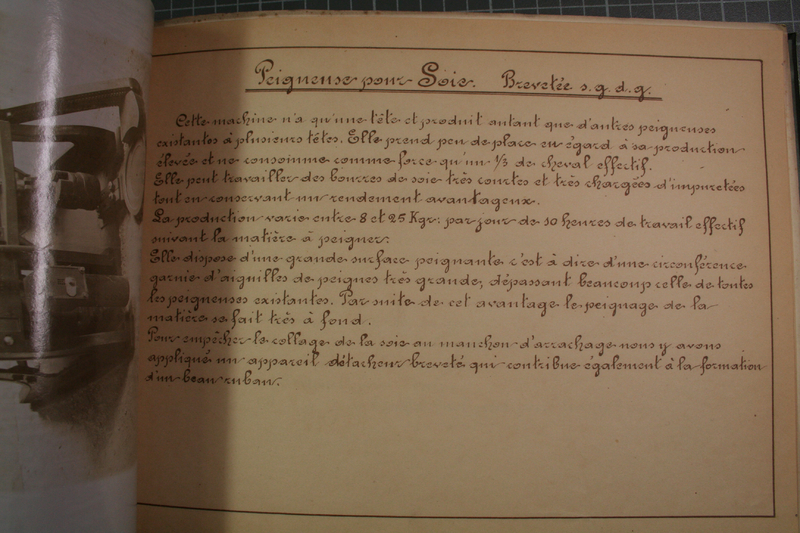 Peigneuse pour Soie. Brevetée s.g.d.g.
Cette machine n'a qu'une tête et produit autant que d'autres peigneuses
existantes à plusieurs têtes. Elle prend peu de place en égard à sa production
élevée et ne consomme comme force qu'un 1/3 de cheval effectif.
Elle peut travailler des bourres de soie très courtes et très chargées d'impuretées
tout en conservant un rendement avantageux.
La production varie entre 8 et 25 Kgr: par jour de 10 heures de travail effectif
suivant la matière à peigner.
Elle dispose d'une grande surface peignante c'est à dire d'une circonférence
garnie d'aiguilles de peignes très grande, dépassant beaucoup celle de toutes
les peigneuses existantes. Par suite de cet avantage le peignage de la
matière se fait très à fond.
Pour empêcher le collage de la soie au manchon d'arrachage nous y avons
appliqué un appareil détacheur breveté qui contribue également à la formation
d'un beau ruban.